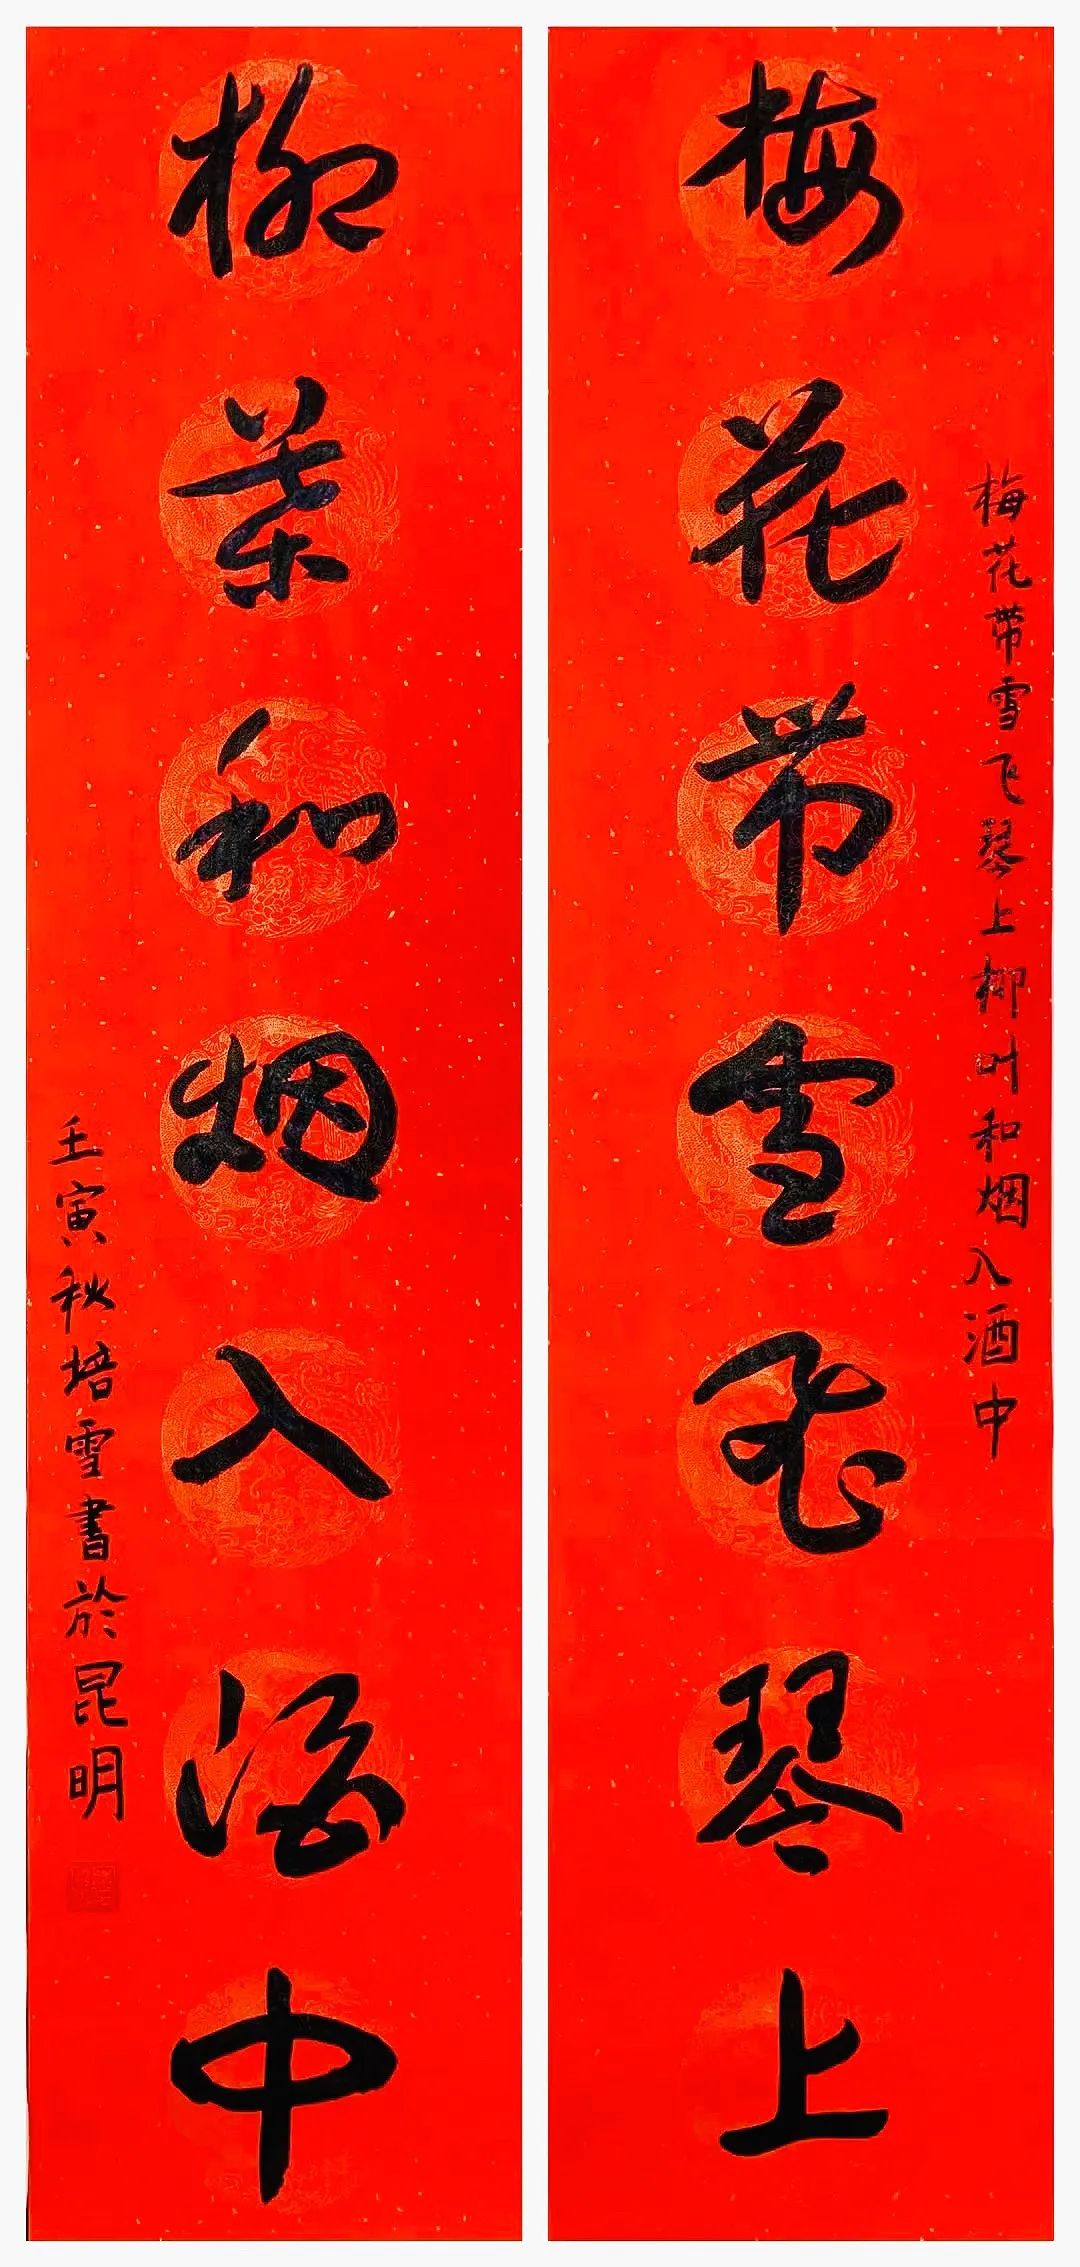 梅花带雪飞琴上
梅花帶雪飞琴上柳叶和烟入酒中
柳葉和烟入酒中
壬寅秋培雪書於昆明